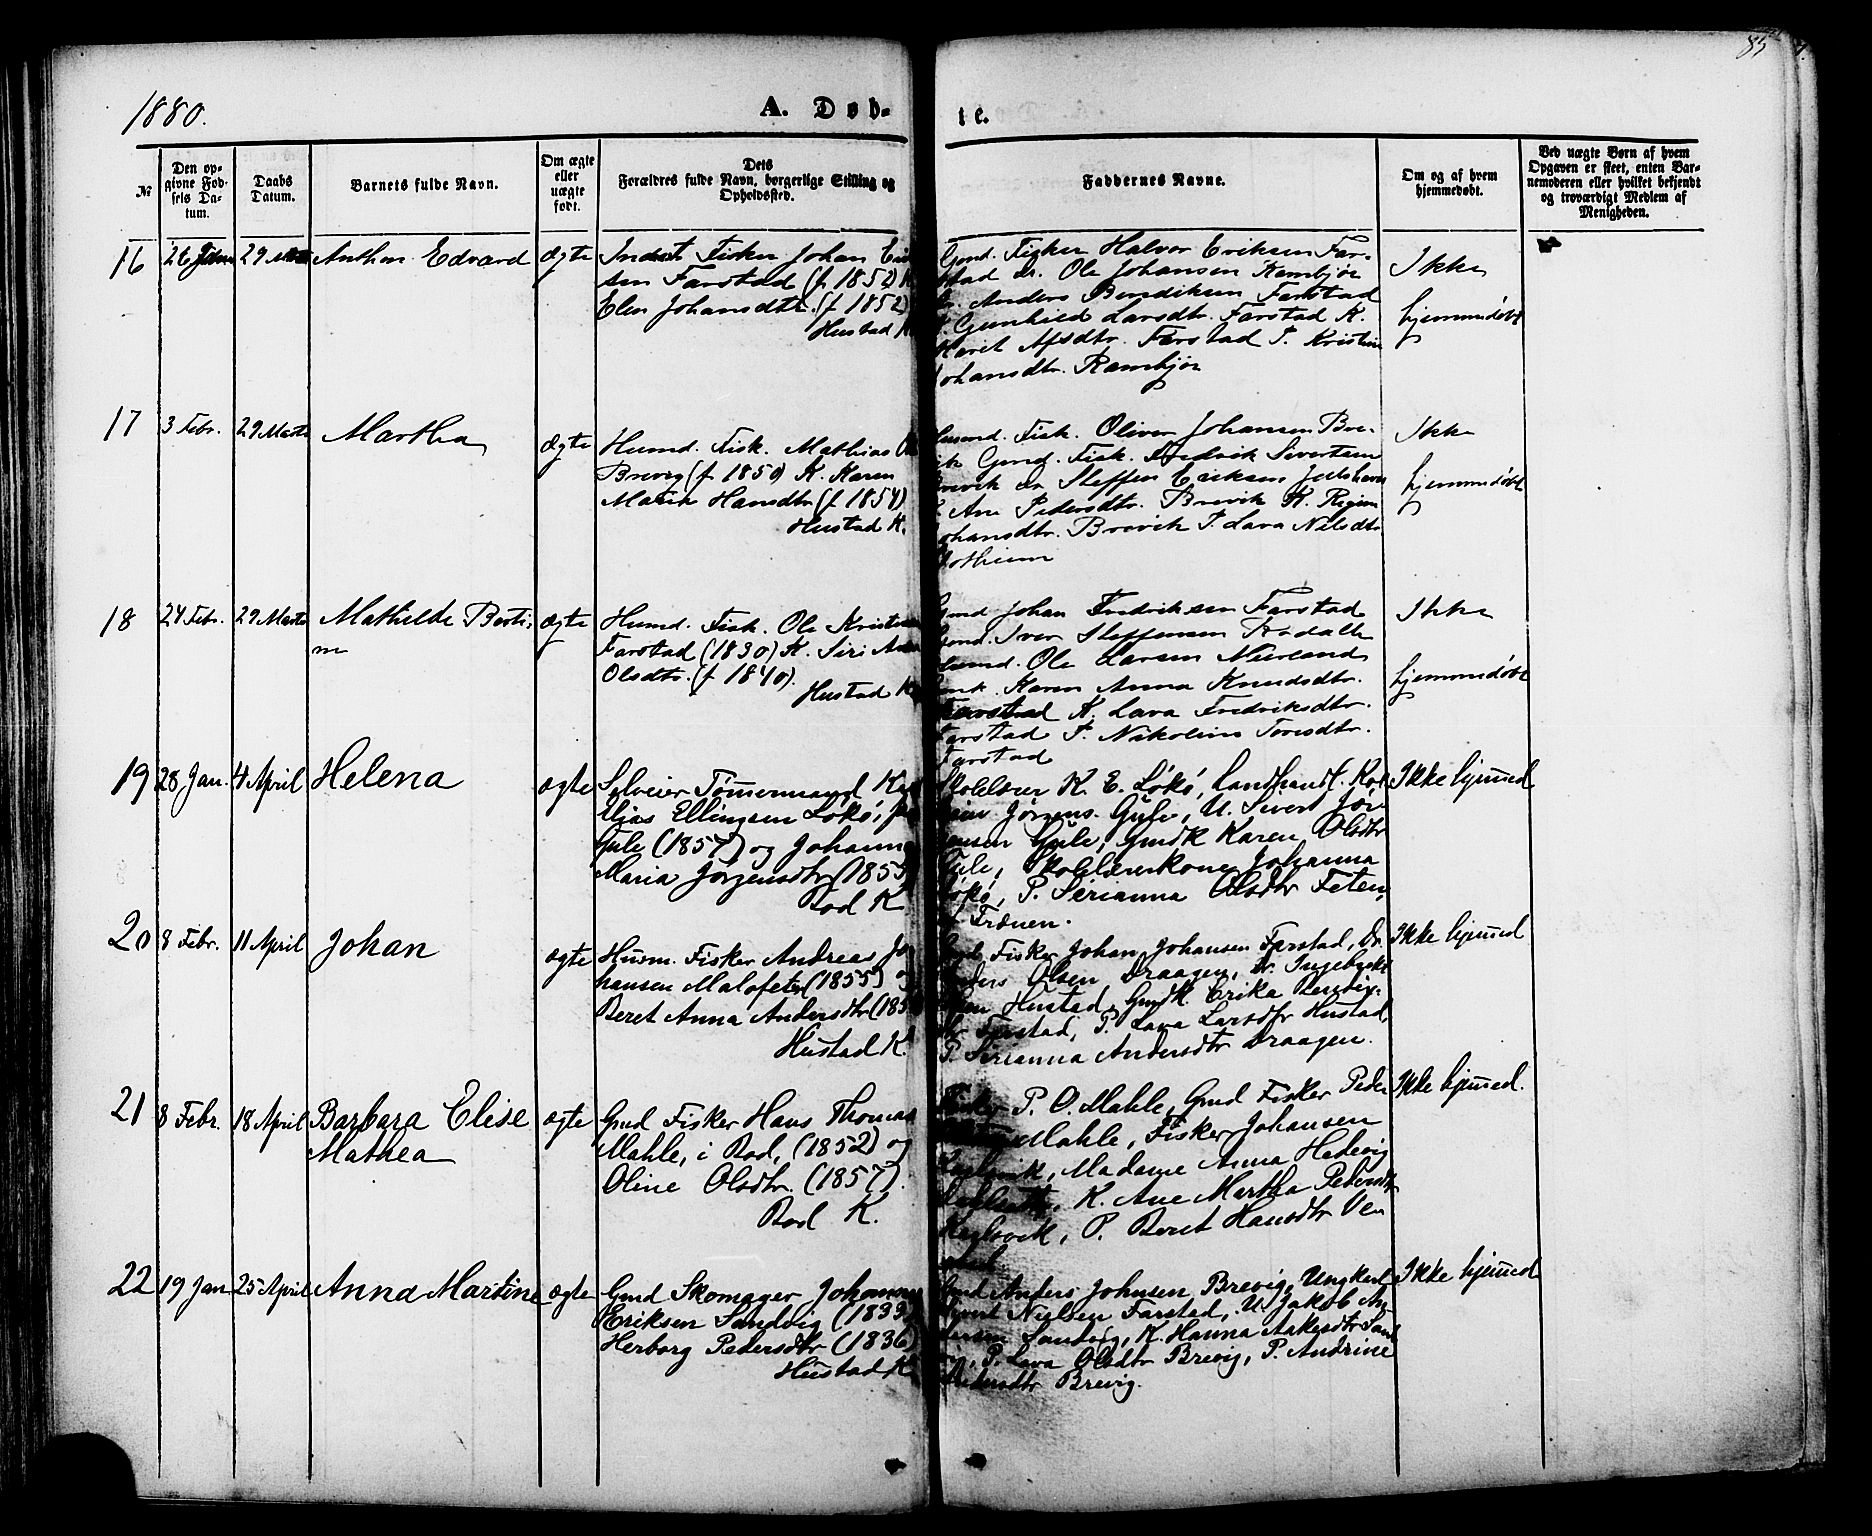 1880.
A. Døb-
te.
85
№
Den op-
givne Fød-
sels Da-
tum.
Daabs
Datum.
Barnets fulde Navn.
Om ægte
eller
uægte
født.
Dets
Forældres fulde Navn, borgerlige Stilling og
Opholdssted.
Faddernes Navne.
Om og af hvem
hjemmedøbt.
Ved uægte Børn af hvem
Opgaven er skeet, enten Bar-
nemoderen eller hvilket bekjendt
og troværdigt Medlem af
Menigheden.
16
29
Anthon Edvard
ægte
Inderst Fisker Johan
sen Farstad (f 1852)
Elen Johansdtr. (f 1852)
Hustad K
Gmd. Fisker Halvor Eriksen Far-
stad Dr. Ole Johansen
Anders Bendiksen Farstad
Gunhild Larsdtr. Farstad K.
Marit Farstad P. Kristine
Johansdtr.
Ikke
hjemmedøbt
17
3 Febr.
29 Marts
Martha
ægte
Husmd. Fisk. Mathias
Brevig (f 1850) K. Karen
Marie Hansdtr (f 1854)
Hustad K.
Husmd. Fisk. Oliver Johansen Bre-
vik Gmd. Fisk. Fredrik Sivertsen
Brevik Dr Steffen Eriksen
Ane Pedersdtr. Brevik K.
Johansdtr. Brevik P. Lava Nilsdtr.
Ikke
hjemmedøbt
18
24 Febr.
29 Marts
Mathilde Berti-
ne
ægte
Husmd. Fisk. Ole
Farstad (1830) K. Siri
Olsdtr. (f 1840).
Hustad K
Gmd Johan Fredriksen Farstad
Gmd. Iver Steffensen
Husmd. Ole Larsen
Karen Anna Knudsdtr.
Farstad K. Lava Fredriksdtr.
Farstad P. Nikoline
Farstad
Ikke
hjemmedøbt
19
28 Jan.
4 April
Helena
ægte
Selveier Tømmermand
Elias Ellingsen Løkö,
Gule (1857) og Johanna
Maria Jørgensdtr (1855)
Bod K
K. E. Løkö, Landhandl.
Jørgens. Gule, U. Sivert Jør-
gensen Gule, Gmdk Karen Olsdtr
Gule, Skolelærerkone Johanna
Løkö, P. Serianna Olsdtr Feten,
Frænen.
Ikke hjemmed
20
8 Febr.
11 April
Johan
ægte
Husm. Fisker Andreas Jo
hansen Malofeten (1855)
Beret Anna Andersdtr
Hustad K.
Fisker Johan Johansen Farstad, Dr.
Anders Olsen Draagen, Dr.
Hustad, Gmdk Erika
Farstad, P. Lava Larsdtr Hustad,
P. Serianna Andersdtr Draagen.
Ikke hjemmed
21
8 Febr.
18 April
Barbara Elise
Mathea
ægte
Gmd Fisker Hans Thomas
Mahle, i Bod, (1852) og
Oline Olsdtr. (1857).
Bod K.
P. O. Mahle, Gmd Fisker Peder
Mahle, Fisker Johansen
Madame Anna Hedevig
K. Ane Martha Pedersdtr
P. Beret Hansdtr
Ikke hjemmed.
22
19 Jan
25 April
Anna Martine
ægte
Gmd Skomager
Eriksen Sandvig (1833)
Herborg Pedersdtr (1836)
Hustad K
Gmd Anders Johnsen Brevig, Ungkarl
Sivert Nielsen Farstad, U. Jakob An-
dersen Sandvig, K. Hanna Aakesdtr Sand
P. Lava Olsdtr Brevig, P. Andrine
Pedersdtr Brevig.
Ikke hjemmed